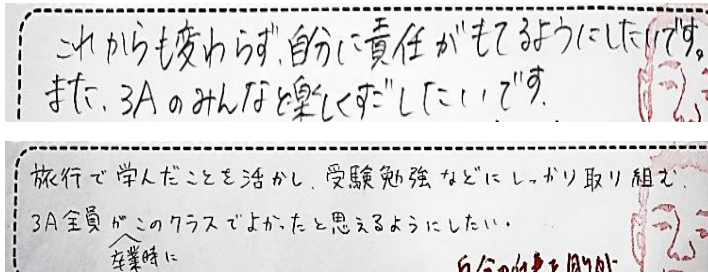 これからも変わらず、自分に責任がもてるようにしたいです。
また、3Aのみんなと楽しくすごしたいです.
旅行で学んだことを活かし、受験勉強などにしっかり取り組む.
3A全員がこのクラスでよかったと思えるようにしたい。
卒業時に